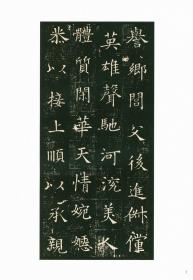 譽鄉閭父後進俶儻
英雄聲馳河兗美人
體質閑華天情婉嫕
恭以接上順以承親